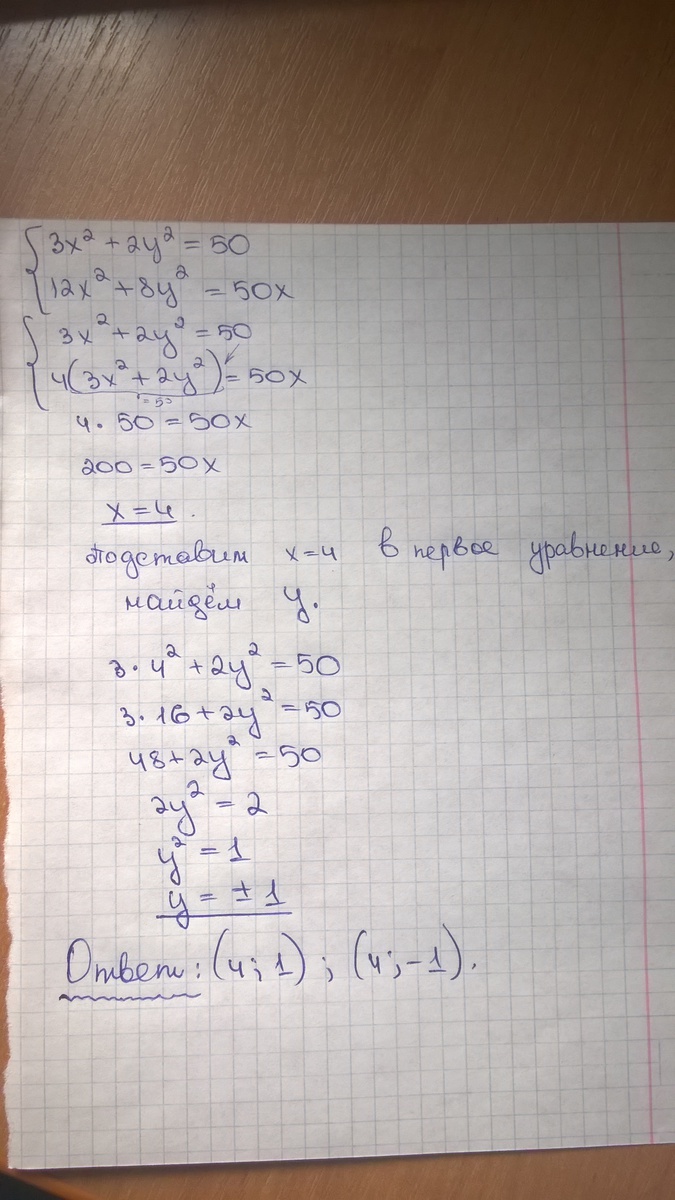 3x² + 2y² = 50
12x² + 8y² = 50x
3x² + 2y² = 50
4(3x² + 2y²) = 50x
= 50
4 · 50 = 50x
200 = 50x
x = 4.
Подставим x=4 в первое уравнение,
найдём y.
3 · 4² + 2y² = 50
3 · 16 + 2y² = 50
48 + 2y² = 50
2y² = 2
y² = 1
y = ± 1
Ответ: (4; 1) ; (4; -1).